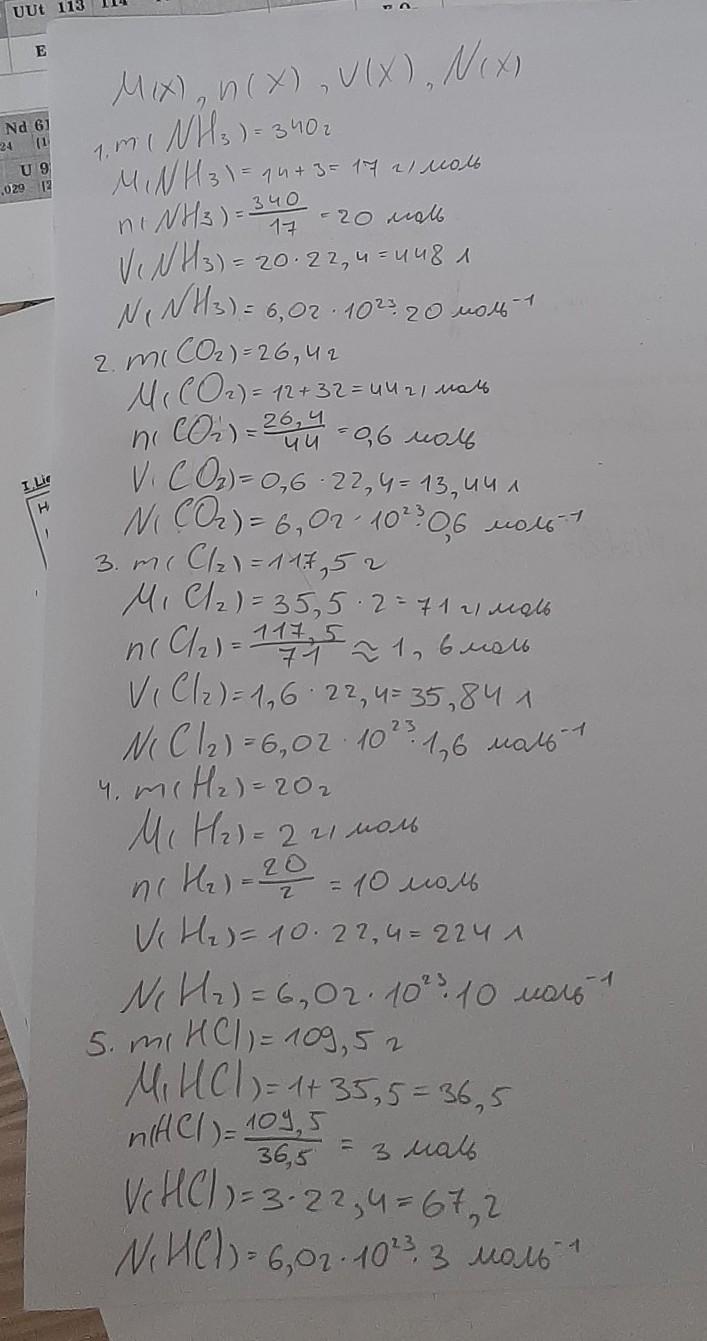 UUt 113 114
E
Nd 61
24 (1
U 9
.029 [2
M(x), n(x), V(x), N(x)
1. m(NH₃)=340г
M(NH₃)=14+3=17 г/моль
n(NH₃)=340/17=20 моль
V(NH₃)=20·22,4=448 л
N(NH₃)=6,02·10²³·20 моль⁻¹
2. m(CO₂)=26,4г
M(CO₂)=12+32=44г/моль
n(CO₂)=26,4/44=0,6 моль
V(CO₂)=0,6·22,4=13,44л
N(CO₂)=6,02·10²³·0,6 моль⁻¹
3. m(Cl₂)=117,5 г
M(Cl₂)=35,5·2=71г/моль
n(Cl₂)=117,5/71≈1,6моль
V(Cl₂)=1,6·22,4=35,84л
N(Cl₂)=6,02·10²³·1,6 моль⁻¹
4. m(H₂)=20г
M(H₂)=2 г/моль
n(H₂)=20/2=10 моль
V(H₂)=10·22,4=224 л
N(H₂)=6,02·10²³·10 моль⁻¹
5. m(HCl)=109,5 г
M(HCl)=1+35,5=36,5
n(HCl)=109,5/36,5=3 моль
V(HCl)=3·22,4=67,2
N(HCl)=6,02·10²³·3 моль⁻¹